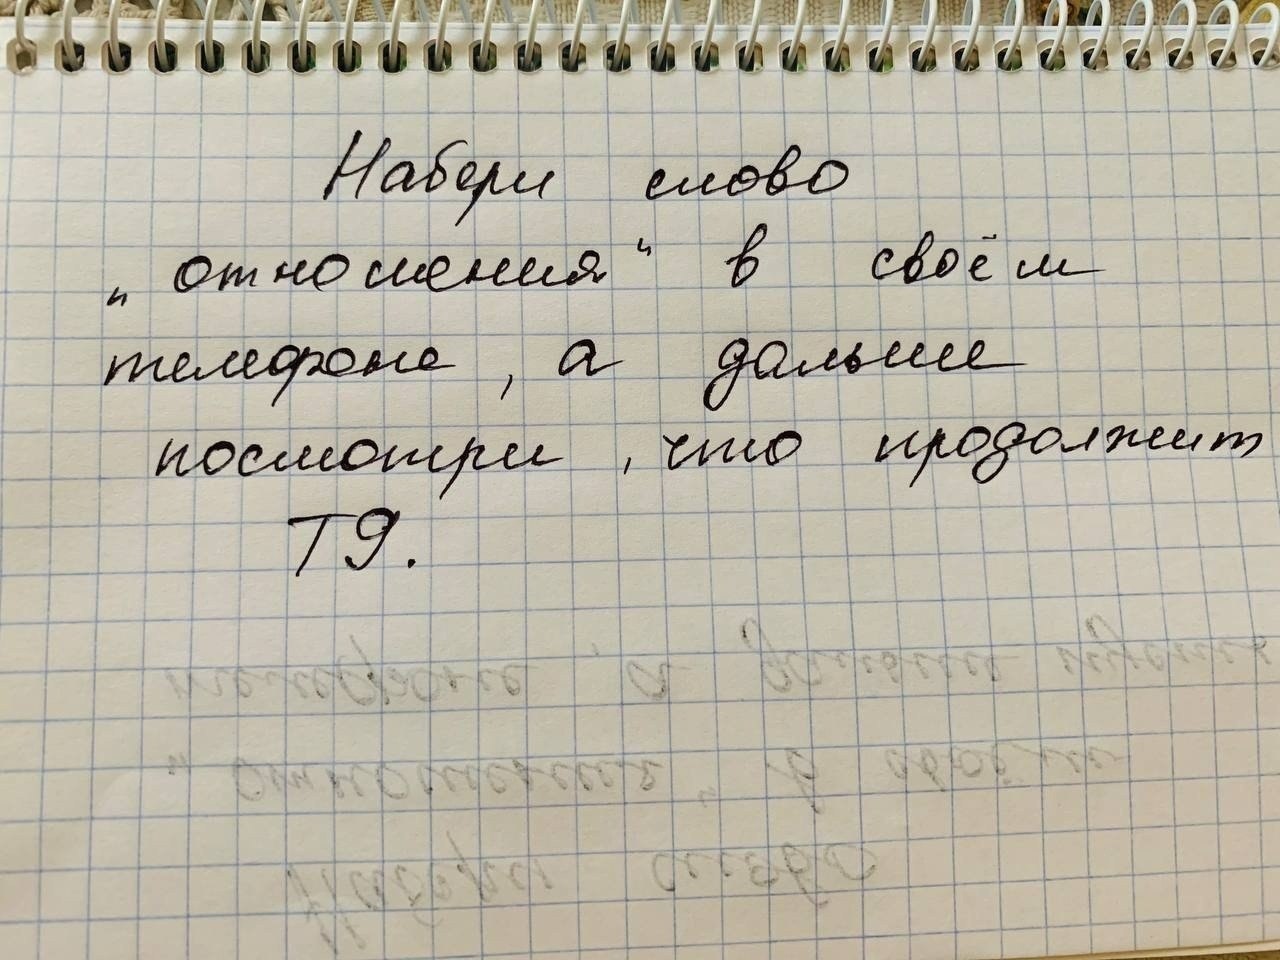 Набери слово
„отношения“ в своём
телефоне, а дальше
посмотри, что продолжит
Т9.